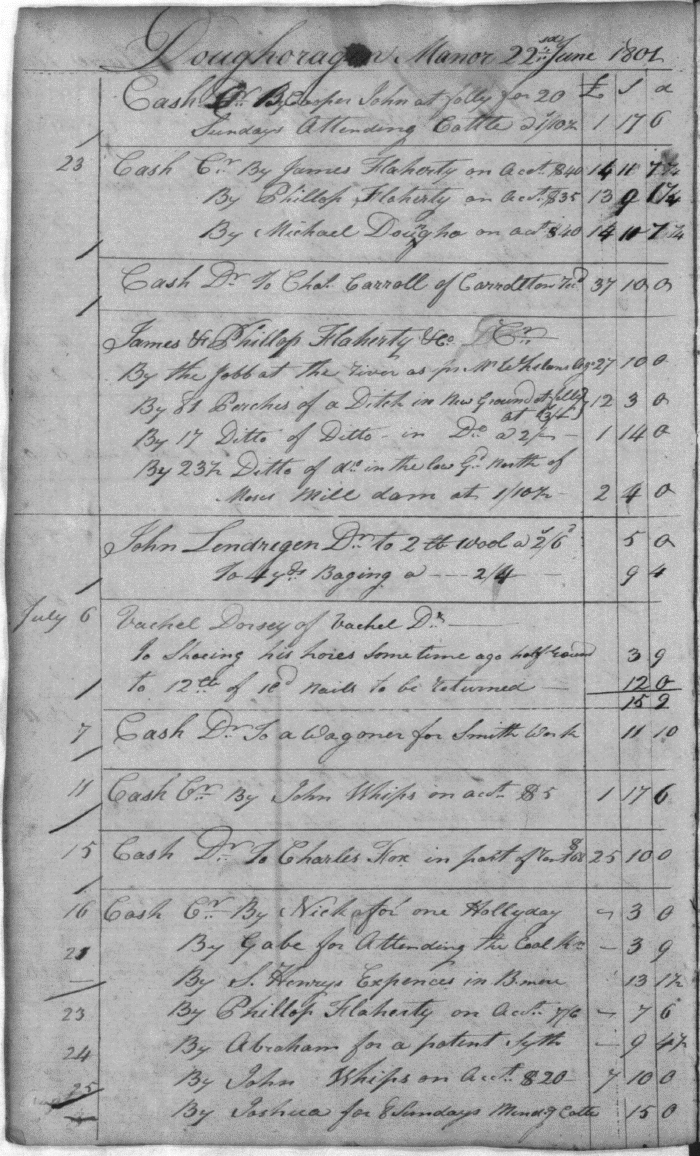 Doughoragen Manor 22nd June 1801
£ S d
Cash Cr By Casper John at folly for 20
Sundays Attending Cattle a 1/10½ 1 17 6
23 Cash Cr By James Flaherty on acct $40 14 11 7¼
By Phillop Flaherty on acct $35 13 9 1¼
By Michael Dougha on acct $40 14 10 7¼
Cash Dr To Chas Carroll of Carrollton 37 10 0
James & Phillop Flaherty & Co Cr
By the Jobb at the river as pr Mr Whelans 27 10 0
By 81 Perches of a Ditch in New Ground at folly at 3/ 12 3 0
By 17 Ditto of Ditto in Do a 2/ 1 14 0
By 23½ Ditto of do in the low Gd North of
Moses Mill dam at 1/10½ 2 4 0
John Lendrigen Dr to 2 lb Wool a 2/6 5 0
To 4 yds Baging a 2/4 9 4
July 6 Vachel Dorsey of Vachel Dr
To Shoeing his hoies some time ago half round 3 9
to 12 lb of 10d nails to be returned 12 0
15 9
7 Cash Dr To a Wagoner for Smith Work 11 10
11 Cash Cr By John Whips on acct $5 1 17 6
15 Cash Dr To Charles Fox in part of rent $68 25 10 0
16 Cash Cr By Nick for one Hollyday 3 0
21 By Gabe for Attending the Coal 3 9
By S. Henrys Expences in Bmore 13 1½
23 By Phillop Flaherty on Acct 7/6 7 6
24 By Abraham for a patent Syth 9 4½
25 By John Whips on acct $20 7 10 0
By Joshua for 8 Sundays Mindg Cattle 15 0